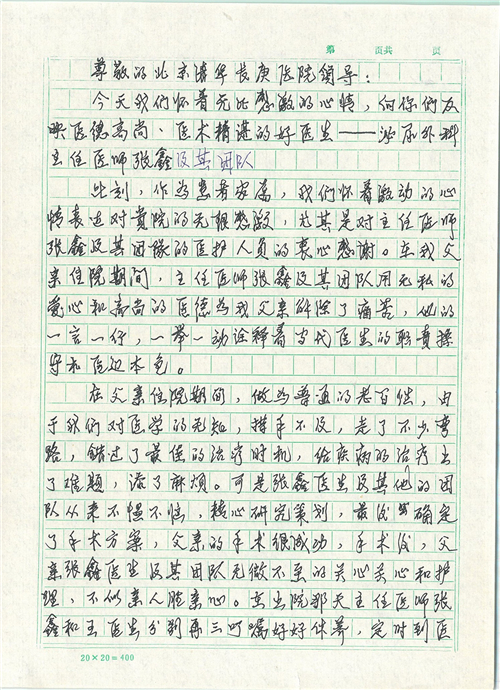 第 页共 页
尊敬的北京清华长庚医院领导：
今天我们怀着无比感激的心情，向你们反
映医德高尚、医术精湛的好医生——泌尿外科
主任医师张鑫及其团队
此刻，作为患者家属，我们怀着激动的心
情表达对贵院的无限感激，尤其是对主任医师
张鑫及其团队的医护人员的衷心感谢。在我父
亲住院期间，主任医师张鑫及其团队用无私的
爱心和高尚的医德为我父亲解除了痛苦，他的
一言一行，一举一动诠释着当代医生的职责操
守和医边本色。
在父亲住院期间，做为普通的老百姓，由
于我们对医学的无知，措手不及，走了不少弯
路，错过了最佳的治疗时机，给疾病的治疗出
了难题，添了麻烦。可是张鑫医生及其他的团
队从来不慌不忙，核心研究策划，最后确定
了手术方案，父亲的手术很成功，手术后，父
亲张鑫医生及其团队无微不至的关心关心和护
理，不似亲人胜亲心。在出院那天主任医师张
鑫和王医生分别再三叮嘱好好休养，定时到医
20×20=400